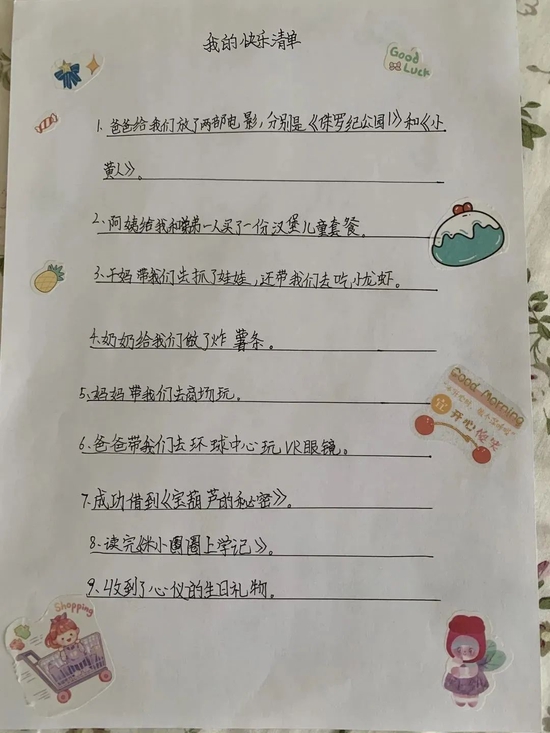 我的快乐清单
Good
Luck
1、爸爸给我们放了两部电影，分别是《侏罗纪公园1》和《小
黄人》。
2、阿姨给我和弟弟一人买了一份汉堡儿童套餐。
3、干妈带我们去抓了娃娃，还带我们去吃小龙虾。
4、奶奶给我们做了炸薯条。
5、妈妈带我们去商场玩。
Good morning
开心
6、爸爸带我们去环球中心玩VR眼镜。
7、成功借到《宝葫芦的秘密》。
8、读完《米小圈上学记》。
9、收到了心仪的生日礼物。
Shopping